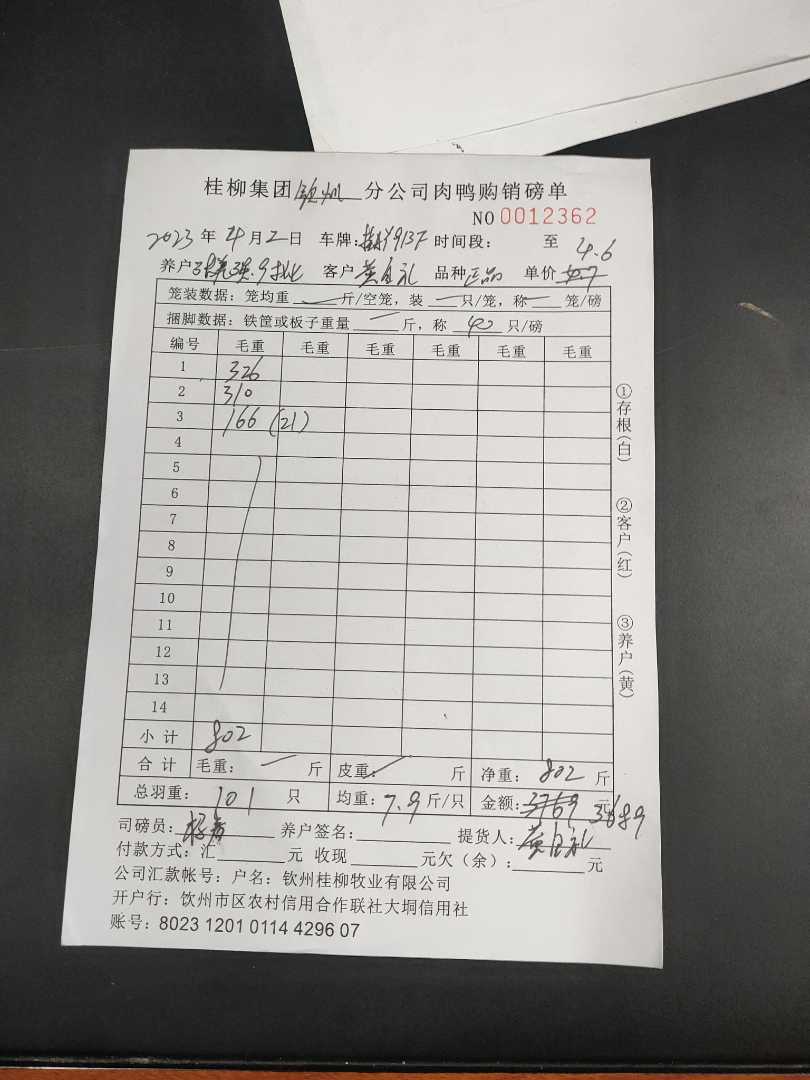 桂柳集团钦州分公司肉鸭购销磅单
NO 0012362
2023年4月2日 车牌: 时间段: 至
4.6
养户 客户 黄自礼 品种 正品 单价 4.7
笼装数据: 笼均重 — 斤/空笼, 装 — 只/笼, 称 — 笼/磅
捆脚数据: 铁筐或板子重量 — 斤, 称 40 只/磅
编号 毛重 毛重 毛重 毛重 毛重 毛重
1 326
2 310
3 166 (21)
4
5
6
7
8
9
10
11
12
13
14
小计 802
合计 毛重: — 斤 皮重: 斤 净重: 802 斤
总羽重: 101 只 均重: 7.9 斤/只 金额: 3769 元 3689
司磅员: 养户签名: 提货人: 黄自礼
付款方式: 汇 元 收现 元欠(余): 元
公司汇款帐号: 户名: 钦州桂柳牧业有限公司
开户行: 钦州市区农村信用合作联社大垌信用社
账号: 8023 1201 0114 4296 07
①存根(白)
②客户(红)
③养户(黄)